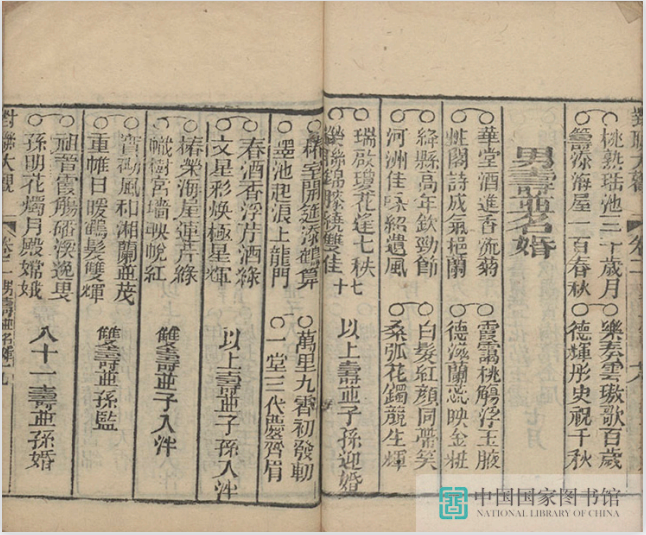 桃熟瑤池三千歲月 樂奏雲璈歌百歲
籌添海屋一百春秋 德輝彤史祝千秋
男壽並名婚
華堂酒進香流菊 霞靄桃觴浮玉液
閣詩成氣挹蘭 德滋蘭蕊映金粧
絳縣高年欽勁節 白髮紅顏同笑
河洲佳咏紹遺風 桑弧花燭競生輝
瑞啟瓊花逢七秩 七十
絲錦繞雙佳 以上壽並子孫迎婚
堂開筵添鶴算 萬里九霄初發軔
墨池起浪上龍門 一堂三代慶齊眉
春酒香浮芹酒綠
文星彩煥極星輝 以上壽並子孫入泮
椿榮海屋連芹綠
幟樹宮墻映帨紅 雙壽並子入泮
風和湘蘭並茂
重帷日暖鶴髮雙輝 雙壽並孫監
祖晉霞觴磻溪逸
孫明花燭月殿嫦娥 八十一壽並孫婚
對聯大觀 卷二 男壽並名婚
中国国家图书馆
NATIONAL LIBRARY OF CHINA